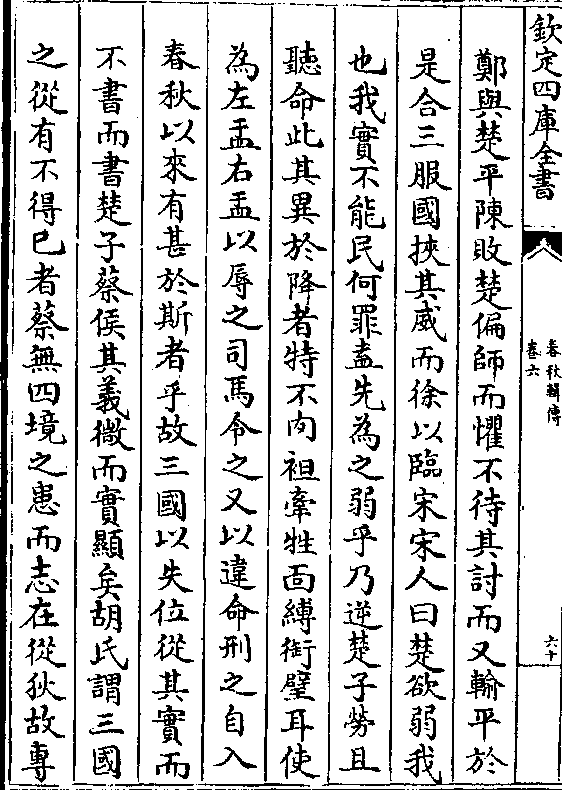 欽定四庫全書
春秋輯傳
卷六
六十
鄭與楚平陳敗楚偏師而懼不待其討而又輸平於
是合三服國挾其威而徐以臨宋宋人曰楚欲弱我
也我實不能民何罪盍先為之弱乎乃逆楚子勞且
聽命此其異於降者特不肉袒牽牲面縛銜璧耳使
為左盂右盂以辱之司馬令之又以違命刑之自入
春秋以來有甚於斯者乎故三國以失位從其實而
不書而書楚子蔡侯其義微而實顯矣胡氏謂三國
之從有不得已者蔡無四境之患而志在從狄故專